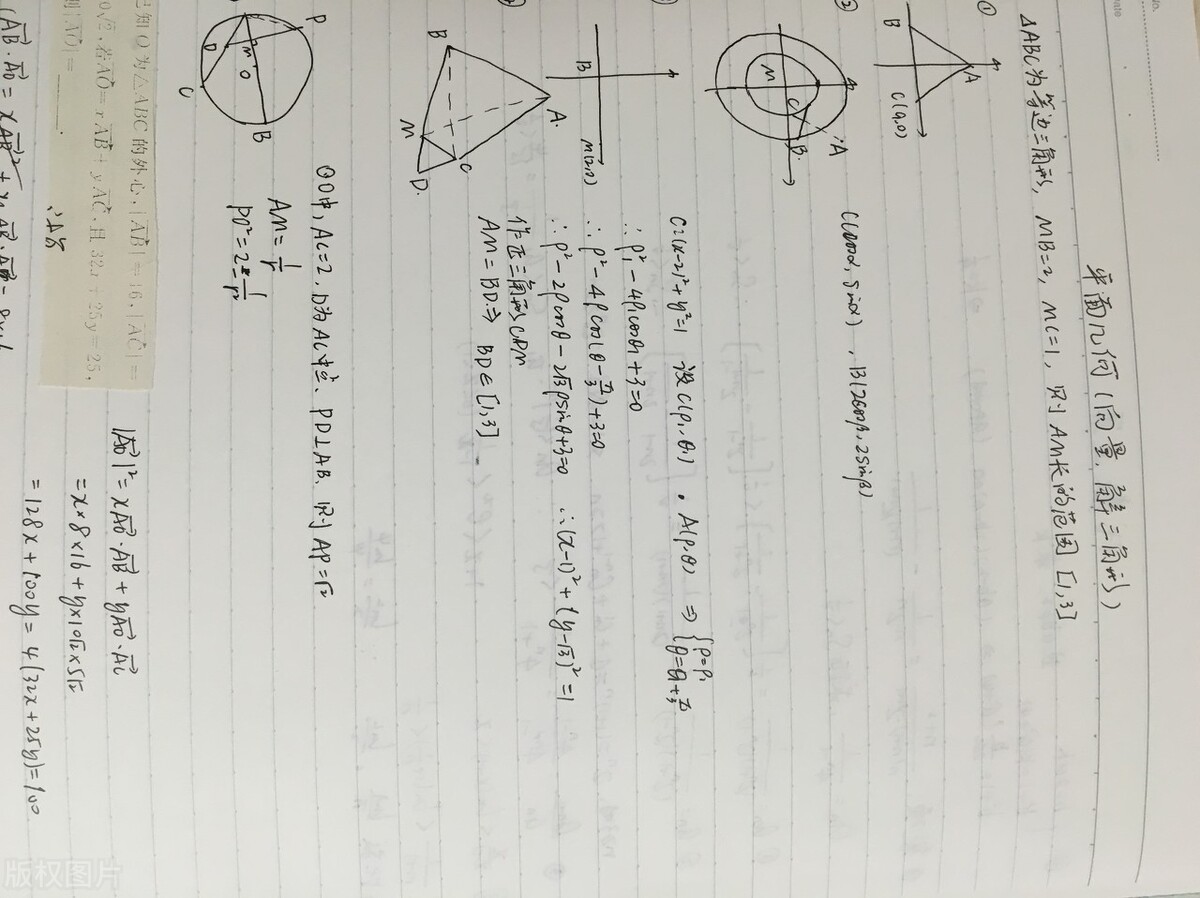 No.
Date
平面几何（向量，解三角形）
△ABC为等边三角形，MB=2，MC=1，则AM长的范围 [1,3]
①
B
A
C(a,0)
②
M
C
B
A
C(cosα, sinα)，B(2cosβ, 2sinβ)
B
M(2,0)
C:(x-2)²+y²=1 设C(ρ₁,θ₁)，A(ρ,θ) ⇒ {ρ=ρ₁ θ=θ₁+π/3
∴ρ₁²-4ρ₁cosθ₁+3=0
∴ρ²-4ρcos(θ-π/3)+3=0
∴ρ²-2ρcosθ-2√3ρsinθ+3=0 ∴(x-1)²+(y-√3)²=1
B
A.
M
C
D.
作正三角形CDM
AM=BD ⇒ BD∈[1,3]
P
D
M
O
C
B
⊙O中，AC=2，D为AC中点，PD⊥AB，则AP=√2
AM=1/r
PD²=2-1/r²
已知O为△ABC的外心，|AB|=16，|AC|=
10√2，若AO=xAB+yAC，且32x+25y=25，
则|AO|=____.
|AO|²=xAO·AB+yAO·AC
=x×8×16+y×10√2×5√2
=128x+100y=4(32x+25y)=100
版权图片